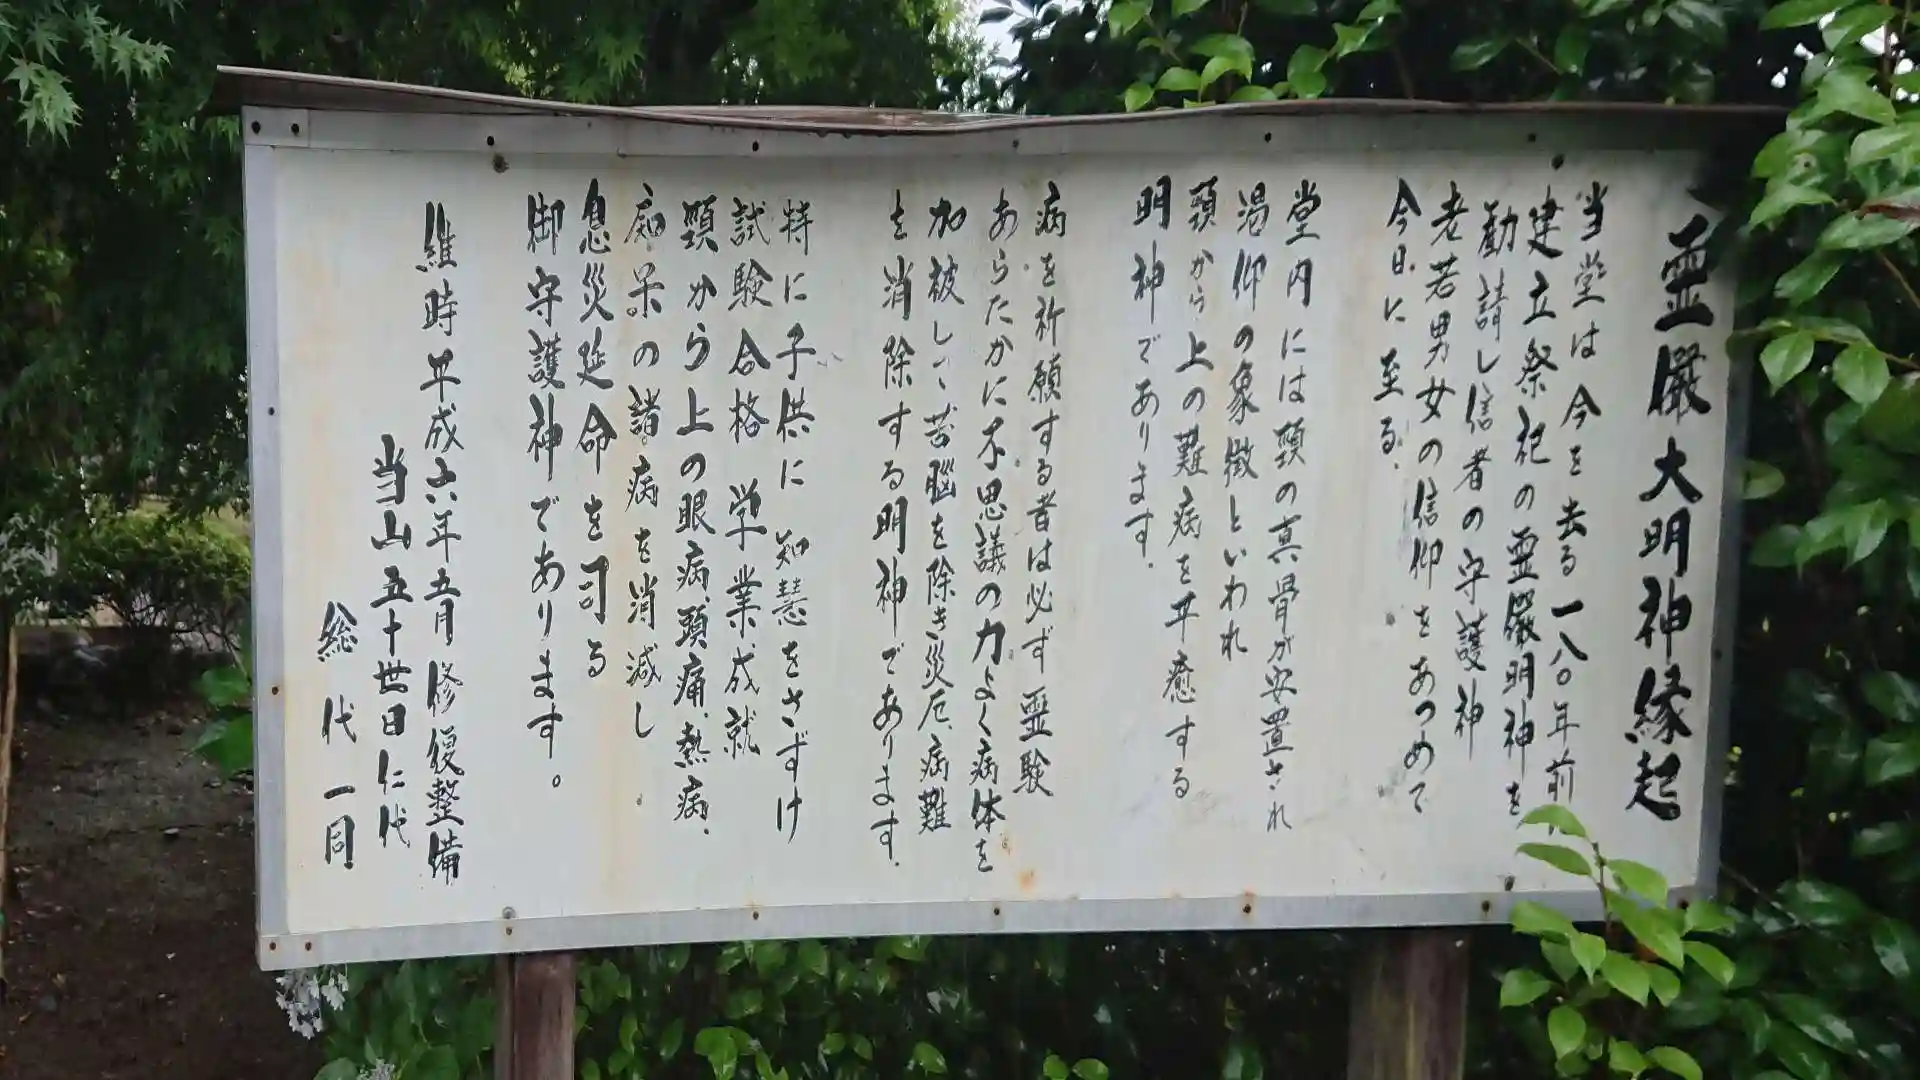 霊厳大明神縁起
当堂は今を去る一八〇年前
建立祭祀の霊厳明神を
勧請し信者の守護神
老若男女の信仰をあつめて
今日に至る.
堂内には頸の真骨が安置され
渇仰の象徴といわれ
頸から上の難病を平癒する
明神であります.
病を祈願する者は必ず霊験
あらたかに不思議の力よく病体を
加被し、苦脳を除き、災厄、病難
を消除する明神であります.
特に子供に知慧をさずけ
試験合格学業成就
頸から上の眼病、頭痛、熱病、
痴呆の諸病を消滅し
息災延命を司る
御守護神であります。
維時平成六年五月修復整備
当山五十世日仁代
総代一同